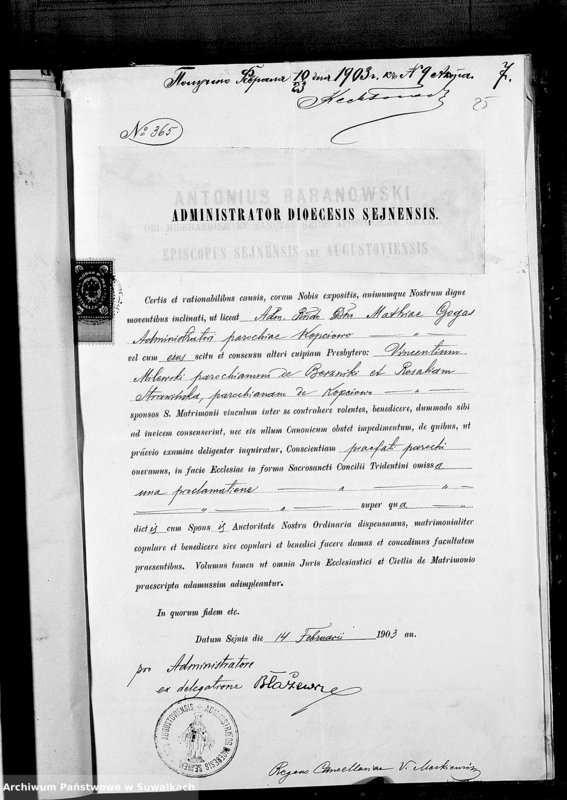 Получено Февраля 10/23 дня 1903 г. къ № 9 7.
25
№ 365
ANTONIUS BARANOWSKI
ADMINISTRATOR DIOECESIS SEJNENSIS.
EPISCOPUS SEJNENSIS SEU AUGUSTOVIENSIS
Certis et rationabilibus causis, coram Nobis expositis, animumque Nostrum digne
moventibus inclinati, ut liceat Adm. Rndo Dno Mathiae Gogas
Administratori parochiae Kopciowo — „ —
vel cum ejus scitu et consensu alteri cuipiam Presbytero: Vincentium
Milewski parochianum de Berzniki et Rosaliam
parochianam de Kopciowo —
sponsos S. Matrimonii vinculum inter se contrahere volentes, benedicere, dummodo sibi
ad invicem consenserint, nec eis ullum Canonicum obstet impedimentum, de quibus, ut
praevio examine deligenter inquiratur, Conscientiam praefati parochi
oneramus, in facie Ecclesiae in forma Sacrosancti Concilii Tridentini omissa
una proclamatione — „ — „ —
— „ — „ — super qua — „
dictis cum Sponsis Auctoritate Nostra Ordinaria dispensamus, matrimonialiter
copulare et benedicere sive copulari et benedici facere damus et concedimus facultatem
praesentibus. Volumus tamen ut omnia Juris Ecclesiastici et Civilis de Matrimonio
praescripta adamussim adimpleantur.
In quorum fidem etc.
Datum Sejnis die 14 Februarii 1903 an.
pro Administratore
ex delegatione Błażewicz
Regens Cancellariae V. Markiewicz
Archiwum Państwowe w Suwałkach